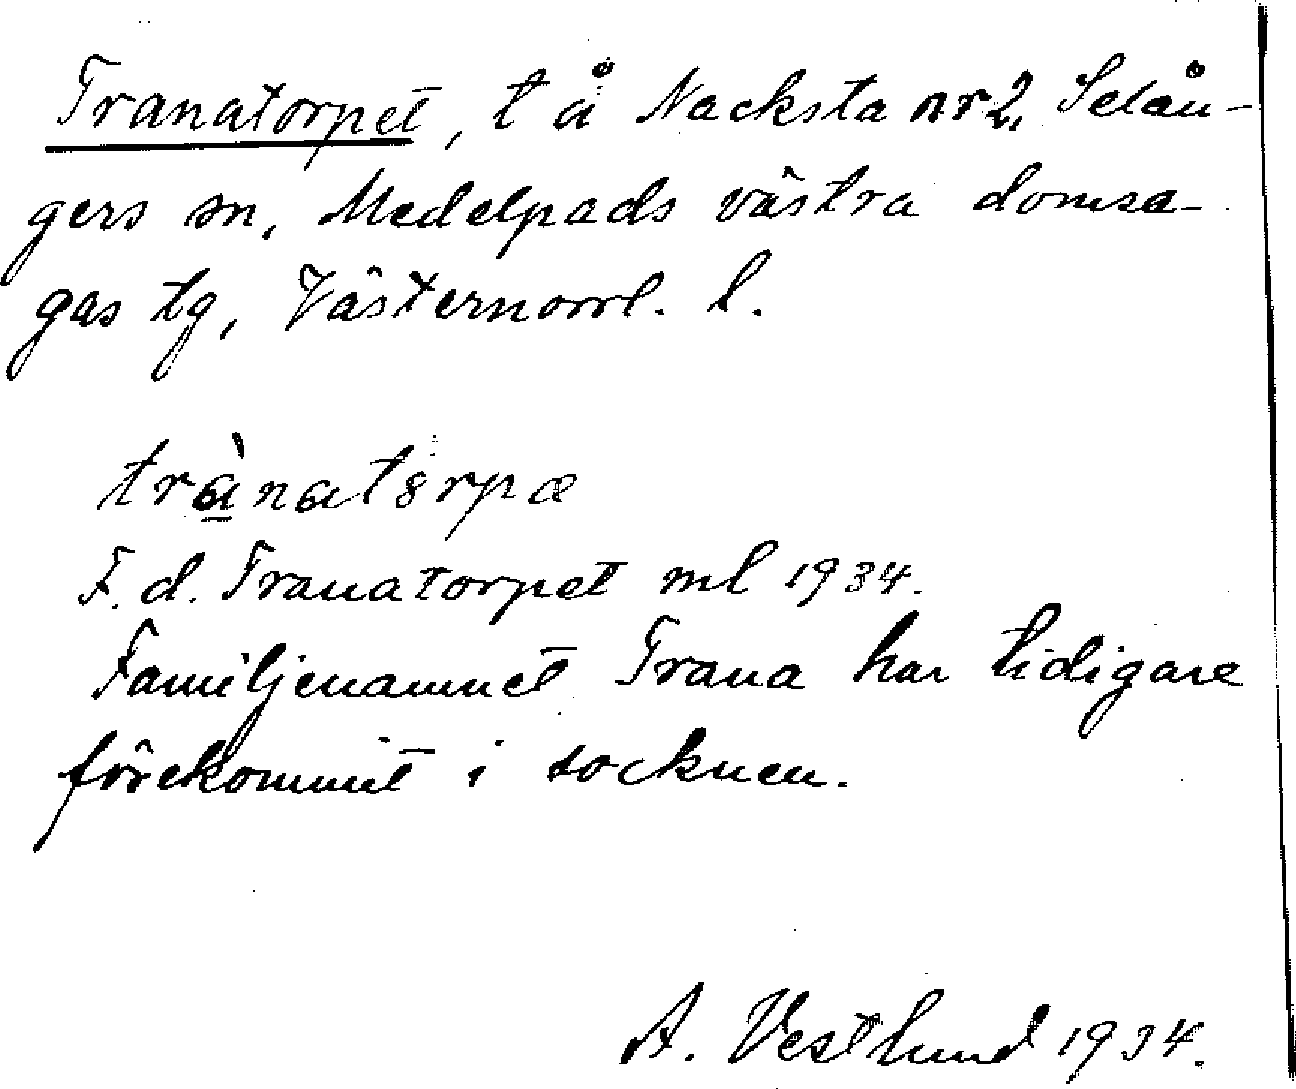 Tranatorpet, t å Nacksta nr 2, Selån-
gers sn, Medelpads västra domsa-
gas tg, Västernorrl. l.
trànatørpæ
F.d. Tranatorpet ml 1934.
Familjenamnet Trana har tidigare
förekommit i socknen.
A. Vestlund 1934.